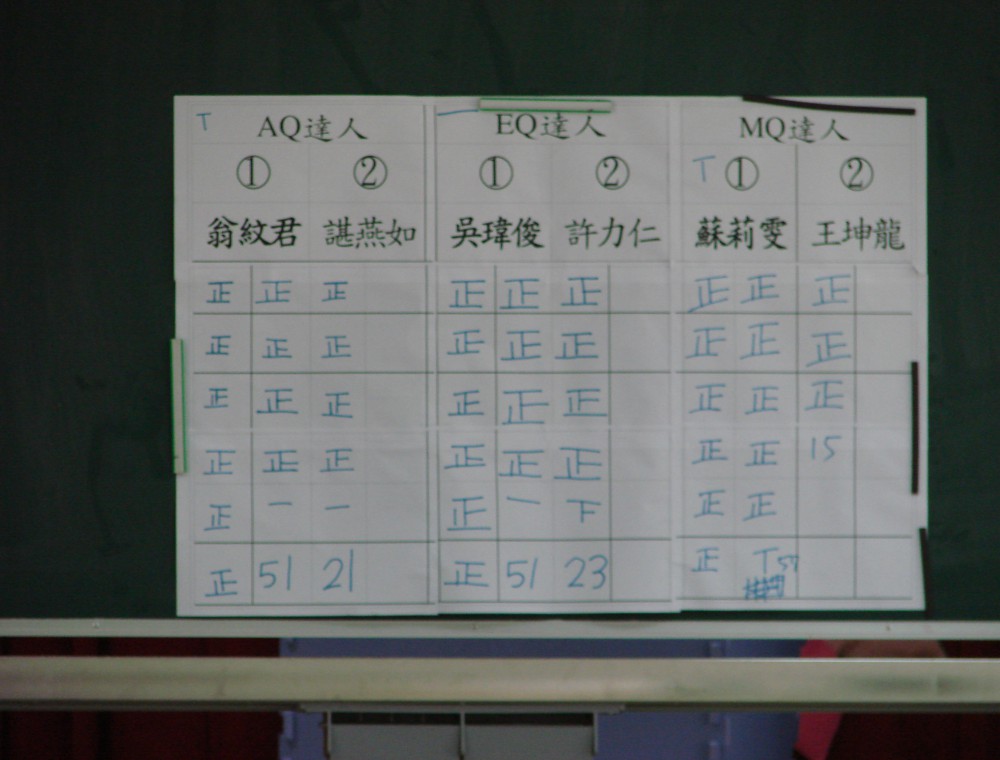 T AQ達人 一 EQ達人 MQ達人
① ② ① ② T ① ②
翁紋君 諶燕如 吳瑋俊 許力仁 蘇莉雯 王坤龍
正 正 正 正 正 正 正 正 正
正 正 正 正 正 正 正 正 正
正 正 正 正 正 正 正 正 正
正 正 正 正 正 正 正 正 15
正 一 一 正 一 下 正 正
正 51 21 正 51 23 正 T 57